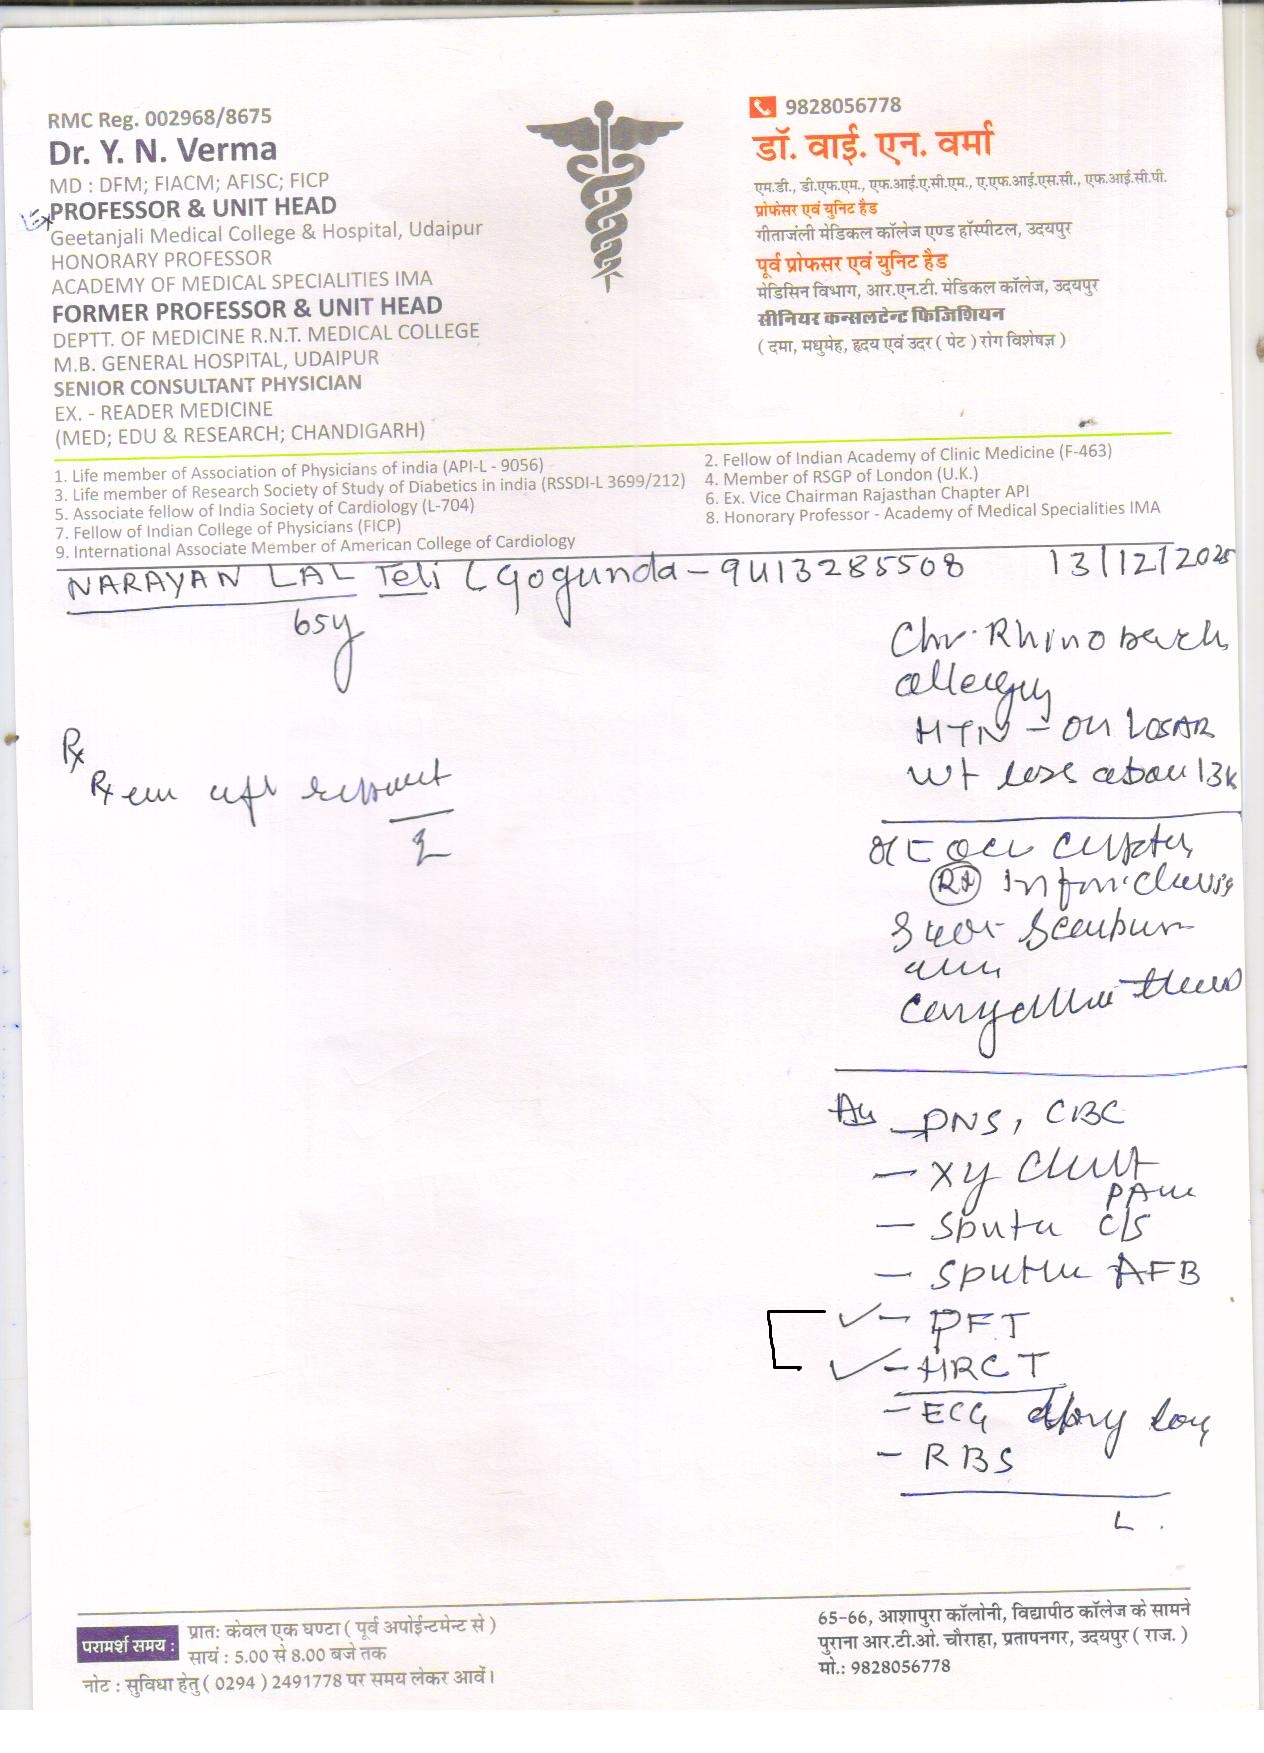 RMC Reg. 002968/8675
Dr. Y. N. Verma
MD : DFM; FIACM; AFISC; FICP
PROFESSOR & UNIT HEAD
Geetanjali Medical College & Hospital, Udaipur
HONORARY PROFESSOR
ACADEMY OF MEDICAL SPECIALITIES IMA
FORMER PROFESSOR & UNIT HEAD
DEPTT. OF MEDICINE R.N.T. MEDICAL COLLEGE
M.B. GENERAL HOSPITAL, UDAIPUR
SENIOR CONSULTANT PHYSICIAN
EX. - READER MEDICINE
(MED; EDU & RESEARCH; CHANDIGARH)
9828056778
डॉ. वाई. एन. वर्मा
एम.डी., डी.एफ.एम., एफ.आई.ए.सी.एम., ए.एफ.आई.एस.सी., एफ.आई.सी.पी.
प्रोफेसर एवं युनिट हैड
गीतांजली मेडिकल कॉलेज एण्ड हॉस्पीटल, उदयपुर
पूर्व प्रोफसर एवं युनिट हैड
मेडिसिन विभाग, आर.एन.टी. मेडिकल कॉलेज, उदयपुर
सीनियर कन्सलटेन्ट फिजिशियन
( दमा, मधुमेह, हृदय एवं उदर ( पेट ) रोग विशेषज्ञ )
1. Life member of Association of Physicians of india (API-L - 9056)
2. Fellow of Indian Academy of Clinic Medicine (F-463)
3. Life member of Research Society of Study of Diabetics in india (RSSDI-L 3699/212)
4. Member of RSGP of London (U.K.)
5. Associate fellow of India Society of Cardiology (L-704)
6. Ex. Vice Chairman Rajasthan Chapter API
7. Fellow of Indian College of Physicians (FICP)
8. Honorary Professor - Academy of Medical Specialities IMA
9. International Associate Member of American College of Cardiology
NARAYAN LAL Teli (Gogunda - 9413285508 13/12/2025
65y
Chr. Rhino
allergy
HTN - on LOSAR
wt loss about 13k
Rx
Rx report
PNS, CBC
- Xy Chest
PA
- Sputu C/S
- Sputum AFB
- PFT
- HRCT
- ECG long
- RBS
परामर्श समय :
प्रातः केवल एक घण्टा ( पूर्व अपोईन्टमेन्ट से )
सायं : 5.00 से 8.00 बजे तक
नोट : सुविधा हेतु ( 0294 ) 2491778 पर समय लेकर आवें।
65-66, आशापुरा कॉलोनी, विद्यापीठ कॉलेज के सामने
पुराना आर.टी.ओ. चौराहा, प्रतापनगर, उदयपुर ( राज. )
मो.: 9828056778